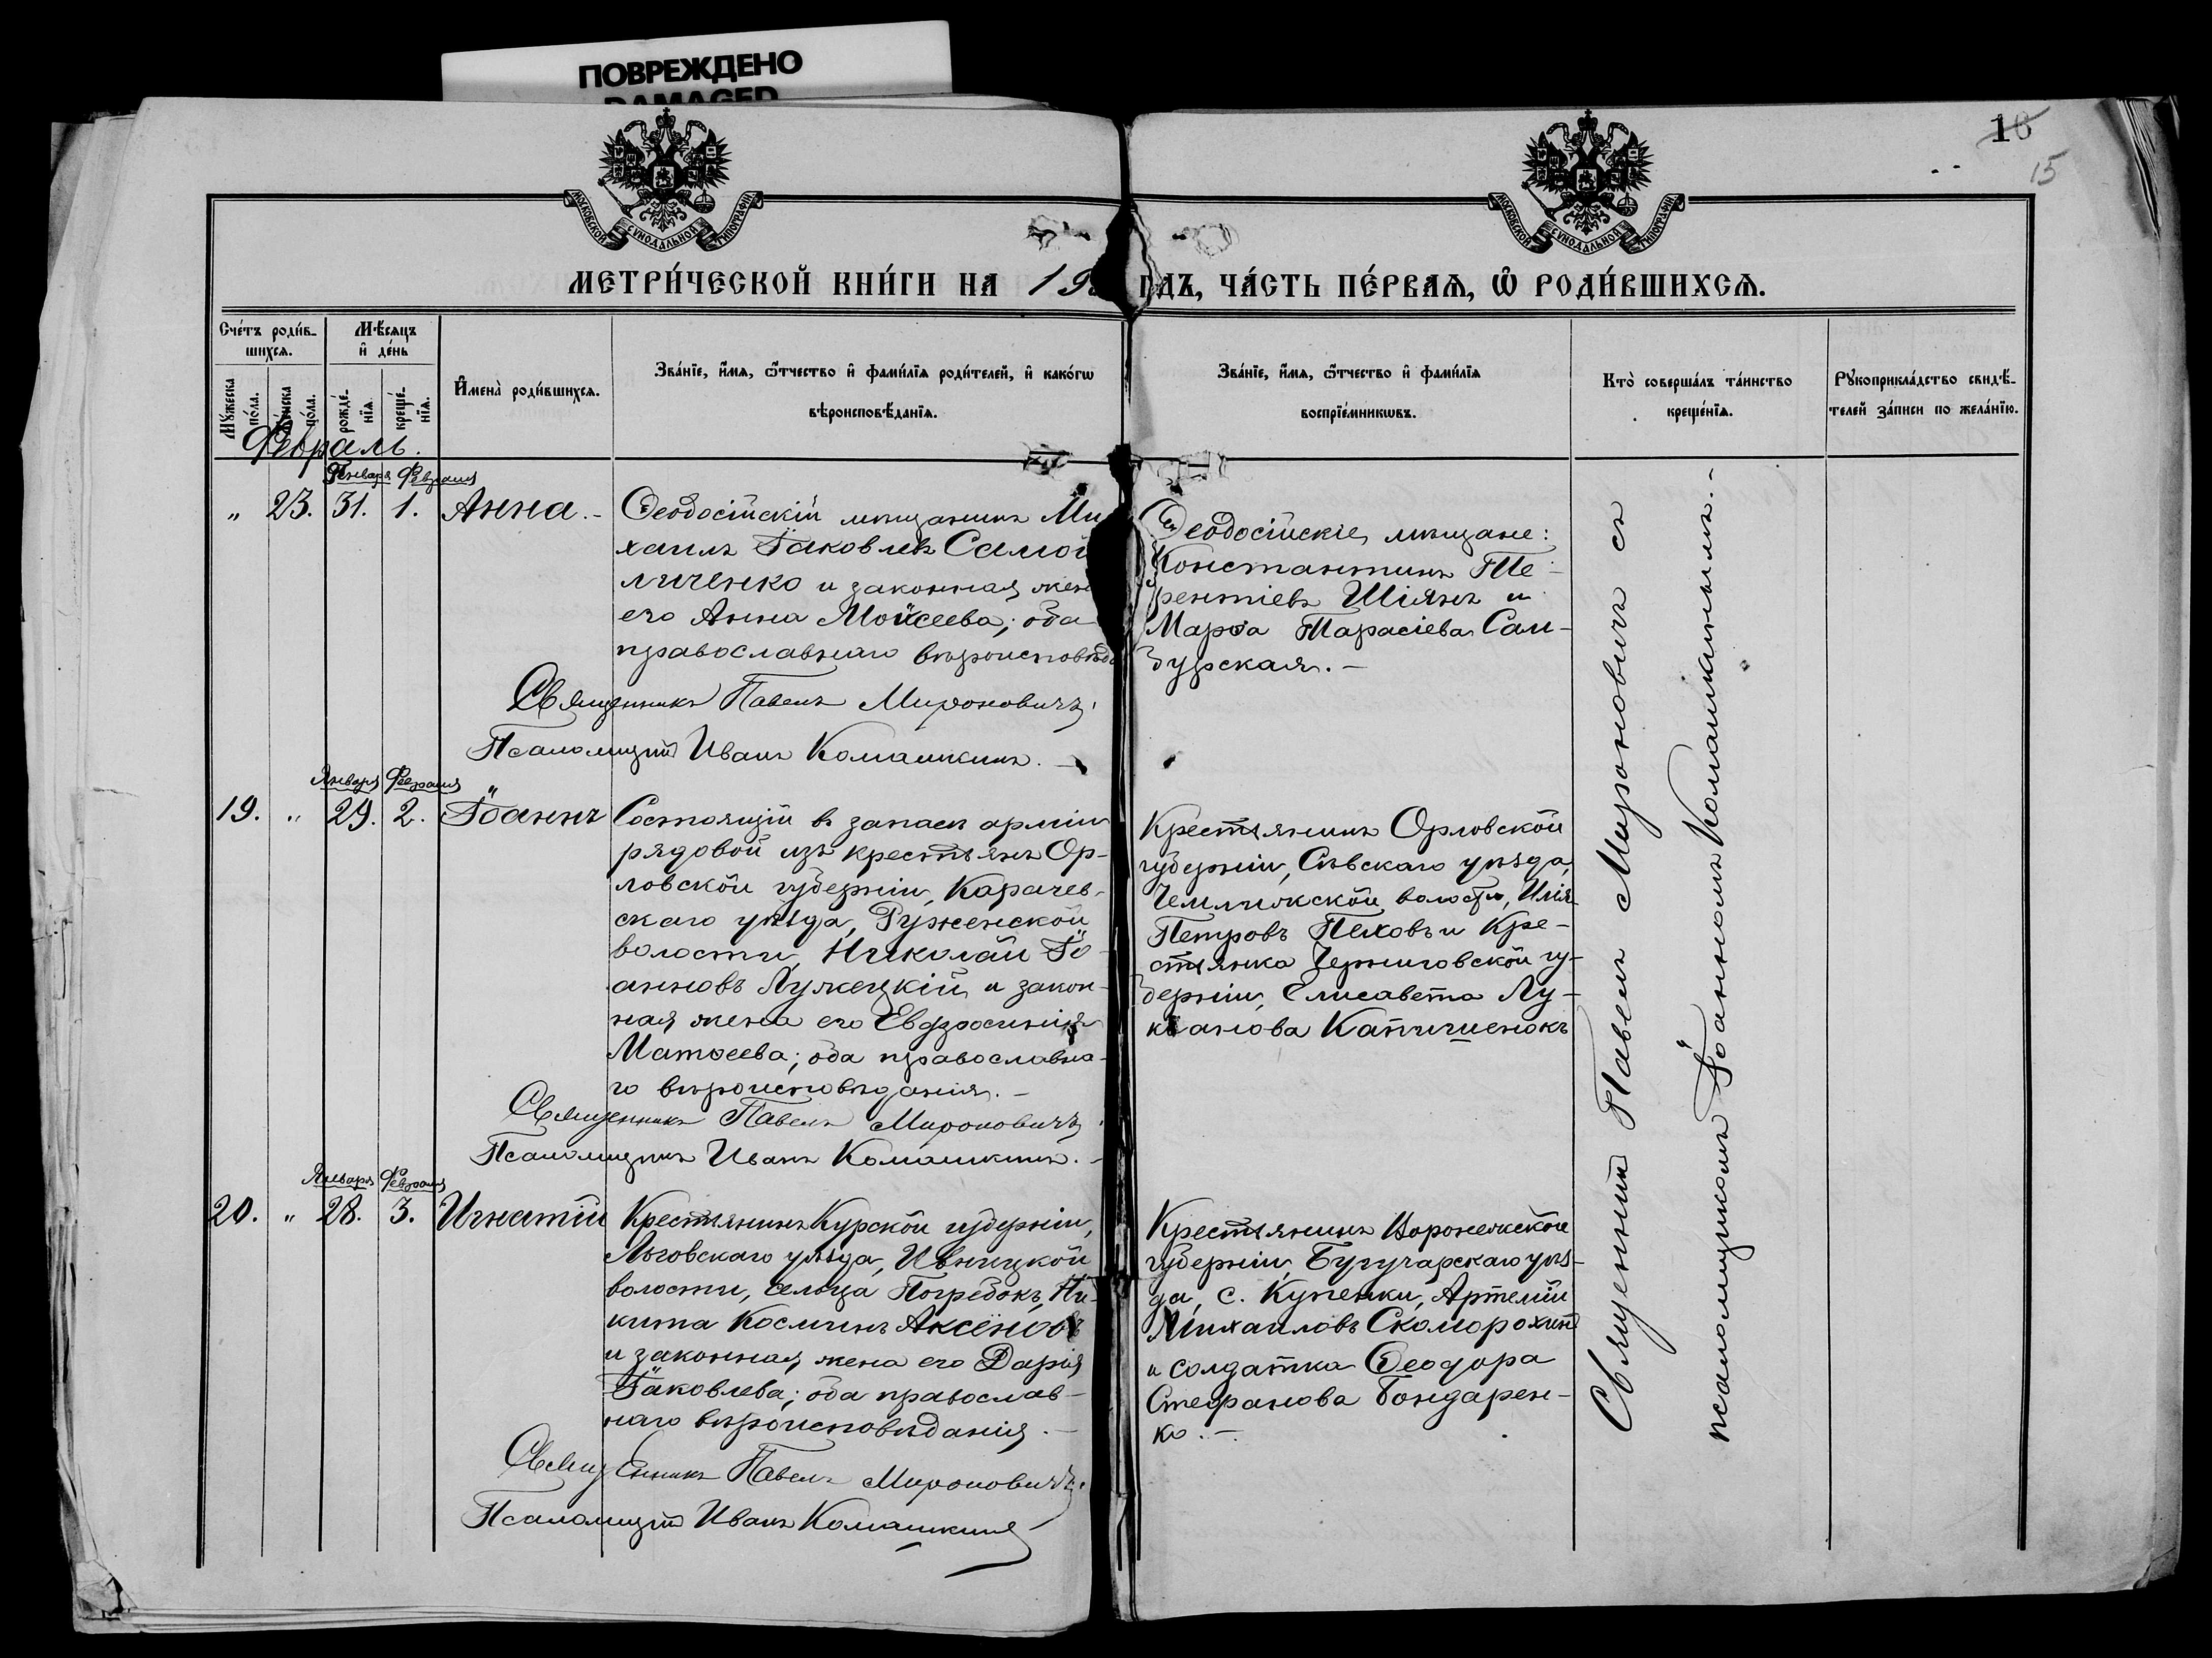 ПОВРЕЖДЕНО
DAMAGED
16
15
МОСКОВСКОЙ СѴНОДАЛЬНОЙ ТИПОГРАФІИ
МОСКОВСКОЙ СѴНОДАЛЬНОЙ ТИПОГРАФІИ
МЕТРИ́ЧЕСКОЙ КНИ́ГИ НА 19
ГДЪ, ЧА́СТЬ ПЕ́РВАѦ, Ѽ РОДИ́ВШИХСѦ.
Сче́тъ роди́в-
шихсѧ.
Мѣ́сѧцъ
и҆ де́нь
Мꙋ́жеска по́ла.
Же́нска по́ла.
рожде́-
нїѧ.
креще́-
нїѧ.
И҆мена̀ роди́вшихсѧ.
Зва́нїе, и҆́мѧ, ѻ҆́тчество и҆ фами́лїѧ роди́телей, и҆ како́гѡ
вѣроисповѣ́данїѧ.
Зва́нїе, и҆́мѧ, ѻ҆́тчество и҆ фами́лїѧ
воспрїе́мникѡвъ.
Кто̀ соверша́лъ та́инство
креще́нїѧ.
Рꙋкоприкла́дство свидѣ́-
телей за́писи по жела́нїю.
Февраль.
Января Февраля
" 23. 31. 1. Анна.-
Ѳеодосійскій мѣщанинъ Ми
хаилъ Іаковлевъ Самой
личенко и законная жен
его Анна Моисеева; оба
православнаго вѣроисповѣд
Священникъ Павелъ Мироновичъ.
Псаломщикъ Иванъ Комашкинъ.
Ѳеодосійскіе мѣщане:
Константинъ Те-
рентіевъ Шіянъ и
Марѳа Тарасіева Сам-
бурская.-
Января Февраля
19. " 29. 2. Іоаннъ
Состоящій въ запасѣ арміи
рядовой изъ крестьянъ Ор-
ловской губерніи, Карачев-
скаго уѣзда, Руженской
волости, Николай Іо-
анновъ Лужецкій и закон-
ная жена его Евфросинія
Матѳеева; оба православна-
го вѣроисповѣданія.-
Священникъ Павелъ Мироновичъ.
Псаломщикъ Иванъ Комашкинъ.-
Крестьянинъ Орловской
губерніи, Сѣвскаго уѣзда,
волости, Илія
Петровъ Пеховъ и Кре-
стьянка Черниговской гу-
берніи, Елисавета Лу-
кіанова Капишенокъ
Января Февраля
20. " 28. 3. Игнатій
Крестьянинъ Курской губерніи,
Льговскаго уѣзда, Ивницкой
волости, сельца Погребокъ, Ни-
кита Косминъ Аксёновъ
и законная жена его Дарія
Іаковлева; оба православ-
наго вѣроисповѣданія.-
Священникъ Павелъ Мироновичъ.
Псаломщикъ Иванъ Комашкинъ
Крестьянинъ Воронежской
губерніи, Бугучарскаго уѣз-
да, с. Купенки, Артемій
Михаиловъ Скоморохинъ
и солдатка Ѳеодора
Стефанова Бондарен-
ко.-
Священникъ Павелъ Мироновичъ съ
псаломщикомъ Іоанномъ Комашкинымъ.-